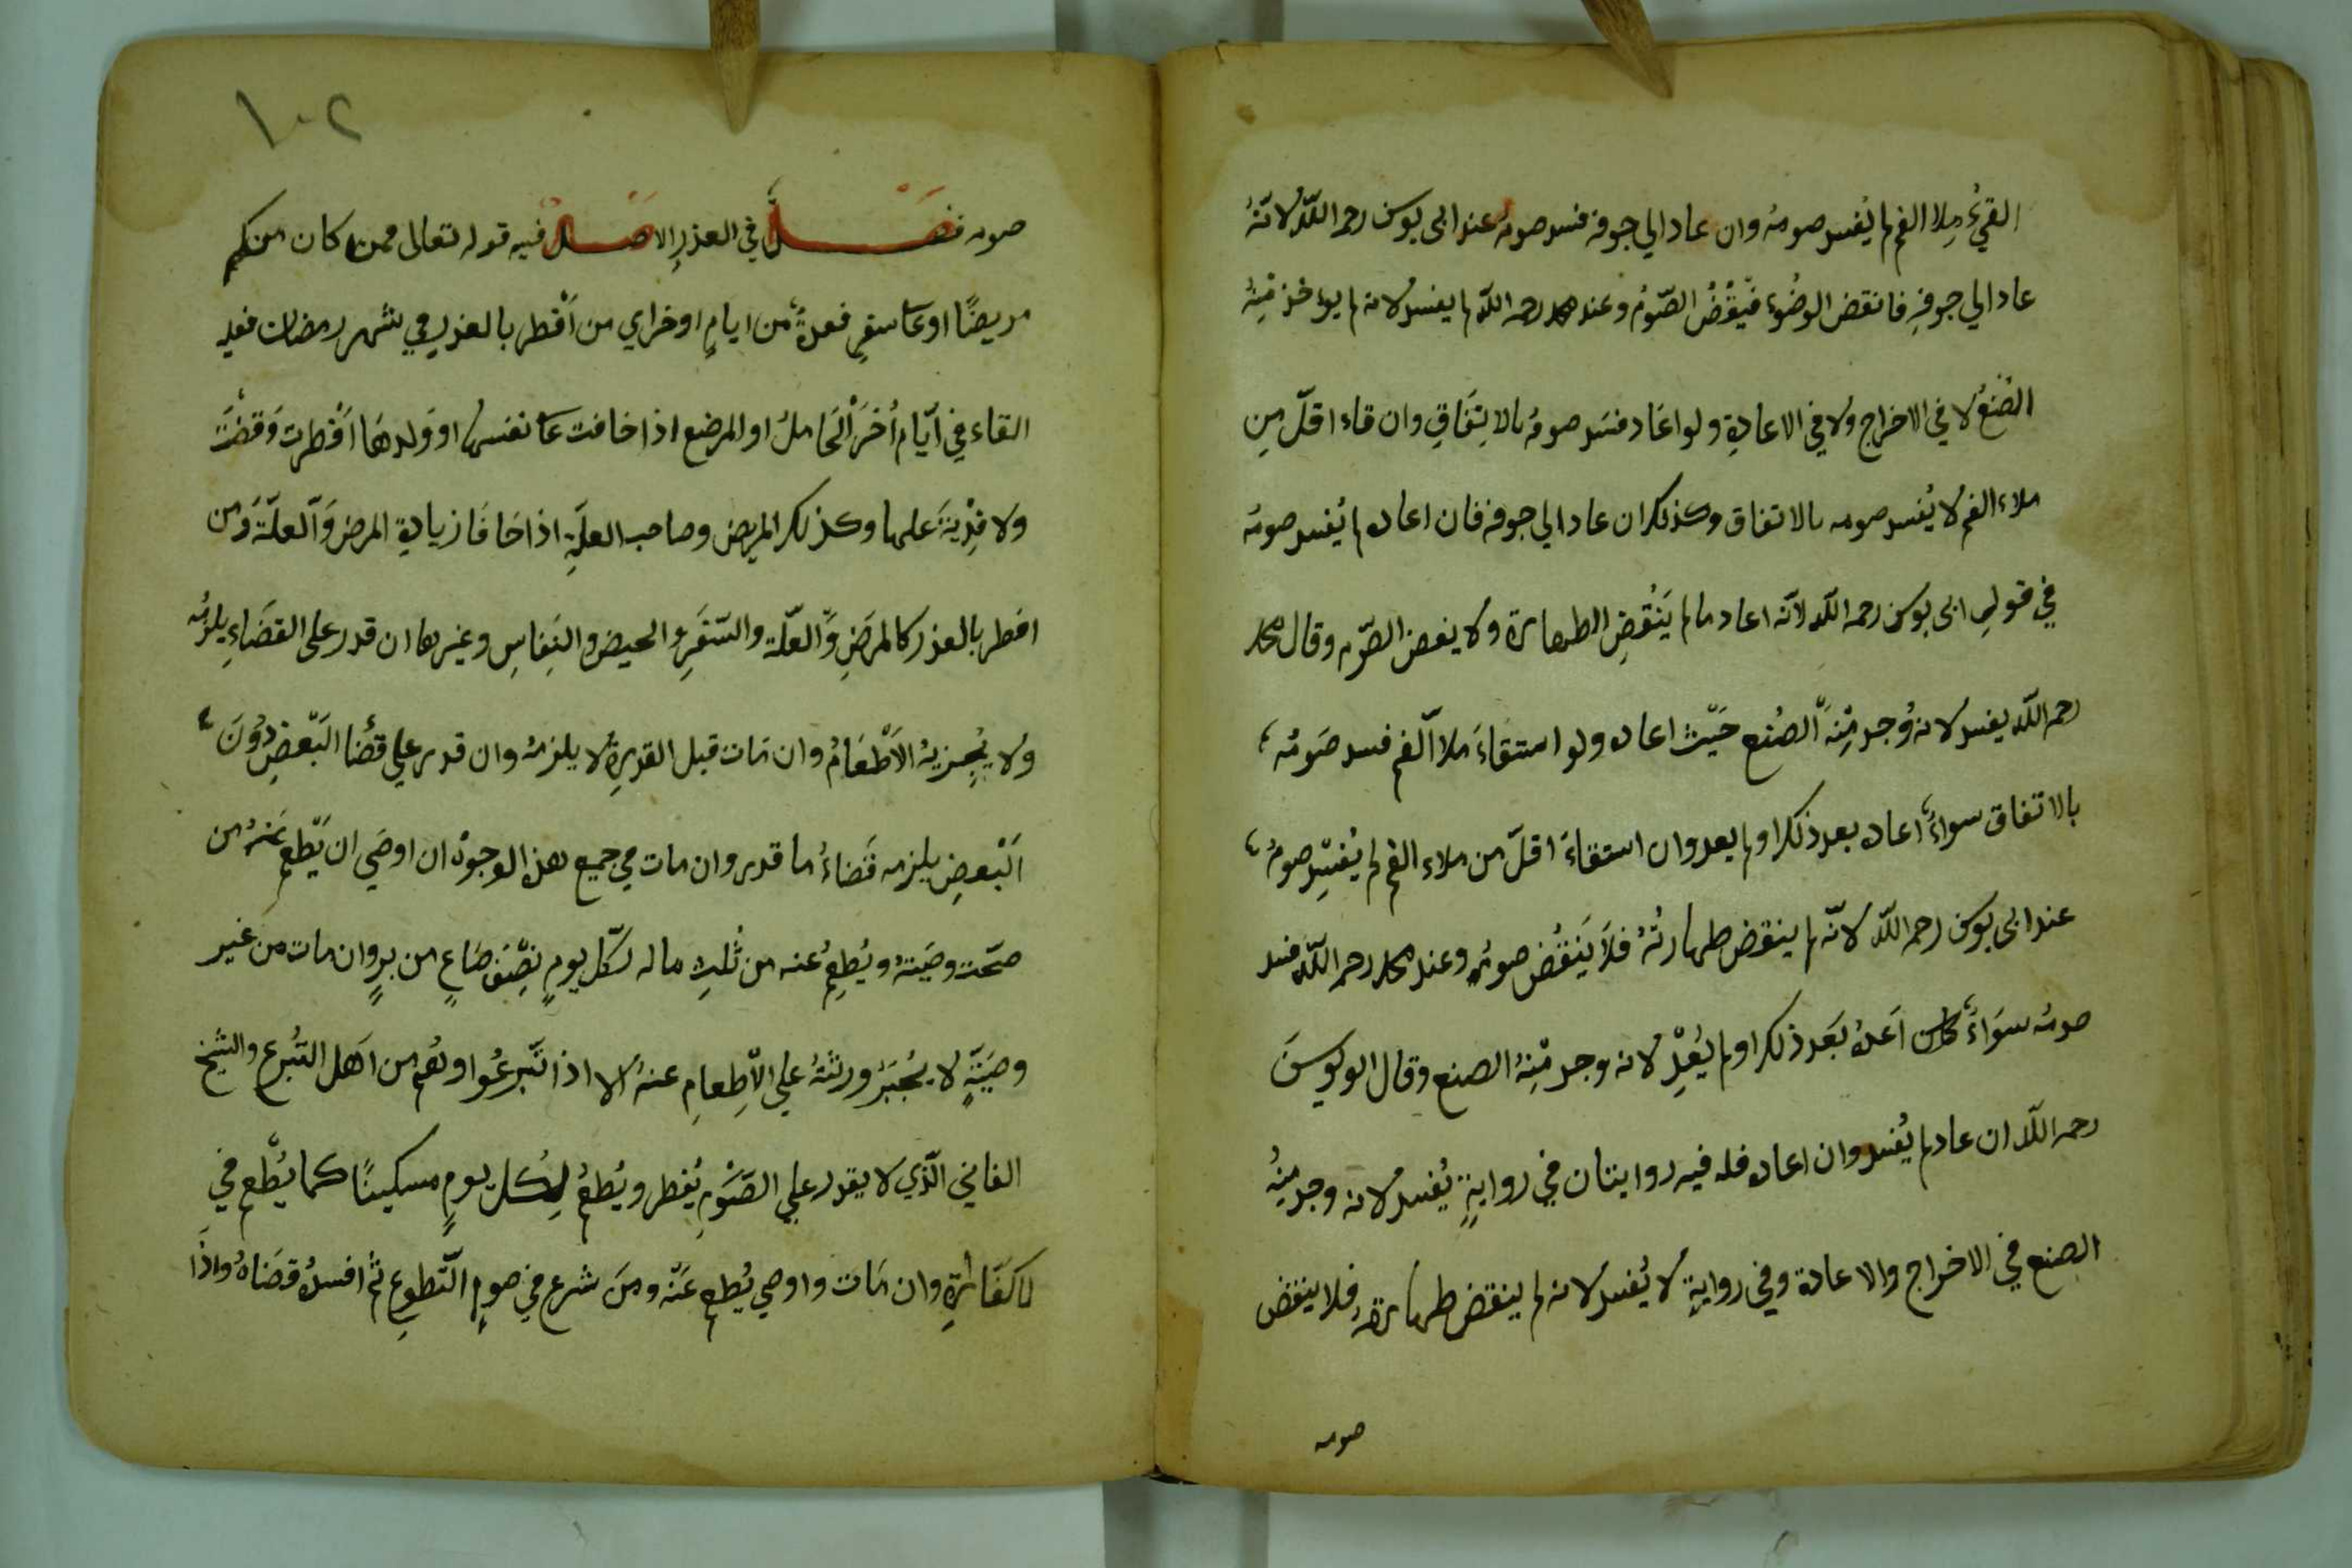 القيءُ مِلاا الفم لم يُفسد صومهُ وان عاد الي جوفه فسد صومهُ عند ابى يوسف رحمه اللّه لانّهُ
عاد الي جوفهِ فانقض الوضُوءِ فَيَنْقُضُ الصّومُ وعند محمد رحمه اللّه لم يفسد لانه لم يوءخذ مِنْهُ
الصُنعُ لا في الاخراج ولا في الاعادةِ ولو اعَاد فسَد صومهُ بالاتِّفَاقِ وان قاء اقلّ مِن
ملاء الفم لا يُفسد صومه بالاتفاق وكذلك ان عاد الي جوفه فان اعاده لم يُفسد صومُه
في قولِ ابى يوسف رحمه اللّه لانّه اعاد ما لم يَنْقُضِ الطهارة ولا ينقض الصّوم وقال محمد
رحمه اللّه يفسد لانه وُجد مِنْهُ الصُنع حَيْث اعاده ولو استقاءَ ملاا الّفم فسد صَومُه
بالاتفاق سواءً اعاد بعد ذلك او لم يعد وان استقاءَ اقلّ من ملاء الفم لم يُفسِد صومُه
عند ابى يوسف رحمه اللّه لانّه لم ينقض طهارتُهُ فلاَ يَنْقُض صومُه وعند محمد رحمه اللّه فسد
صومُه سوَاءً كان اَعادُ بَعد ذلك او لم يُعِدْ لانه وجد مِنْهُ الصنع وقال ابو يوسفَ
رحمه اللّه ان عاد لم يُفسد وان اعاده فله فيه روايتان في روايةٍ يُفسد لانه وجد مِنْهُ
الصنع في الاخراج والاعادة وفي روايةٍ لا يُفسد لانه لم ينقض طهارتهُ فلا ينقض
صومه
١٠٢
صومه فصل في العذرِ الاصل فيه قوله تعالى فمن كان منكم
مريضًا او عَلى سفرٍ فعدةٌ من ايامٍ اوخر اي من اَفْطر بالعذر في شهر رمضان فعليه
القاء في اَيّام اُخَرَ الحَاملُ او المرضع اذا خافت عَلى نفسها او وَلدهَا اَفْطرت وَقضَتْ
ولا فِدْيةَ عليها وكذلك المريض وصاحب العلّةِ اذا خَافَا زيادةِ المرض وَالعلّة وَمن
افطر بالعذر كالمرَضِ وَالعلّة والسّفَرِ والحيض والنِفاسِ وغيرها ان قدر على القضَاءِ يلزمُه
ولا يُجزيهُ الاَطْعَامُ وان مَات قبل القدرةِ لا يلزمهُ وان قدر علي قضَا البَعْضِ دُونَ
البَعْضِ يلزمه قَضاءُ ما قدر وان مات في جميع هذا الوجوهْ ان اوصَي ان يّطعِم عَنهُ من
صحّت وصَيّتهُ ويُطعِمُ عنه من ثُلثِ ماله لكّل يومٍ نصْف صَاعٍ من برٍ وان مات من غير
وصَيّةٍ لا يُجْبَرُ ورثتهُ علي الاّطِعامِ عنهُ الا اذا تّبرعُوا وهُم من اَهل التبُرع والشيخ
الفاني الّذي لا يقدر علي الصَّوْمِ يُفطر ويُطعمُ لِكُل يومٍ مسكينًا كما يُطعم في
لا كفَّارةِ وان مَات واوصي يُطعم عَنْه ومنَ شرع في صومِ التّطوعِ ثم افسدهُ قضَاهُ واذَا